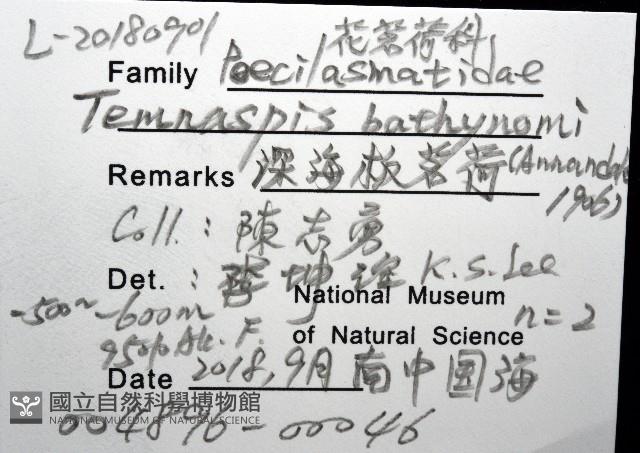 L-20180901 花茗荷科
Family Poecilasmatidae
Temnaspis bathynomi
Remarks 深海板茗荷 (Annandale 1906)
Coll. : 陳志勇
Det. : 李坤瑄 K.S.Lee
-500~-600m National Museum n=2
95% Alc. F. of Natural Science
Date 2018, 9月 南中国海
國立自然科學博物館
NATIONAL MUSEUM OF NATURAL SCIENCE
004876-00046